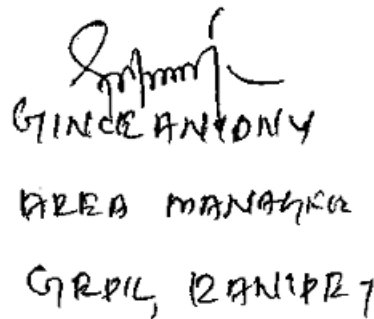 GINCE ANTONY
AREA MANAGER
GRDIL, RANIPET